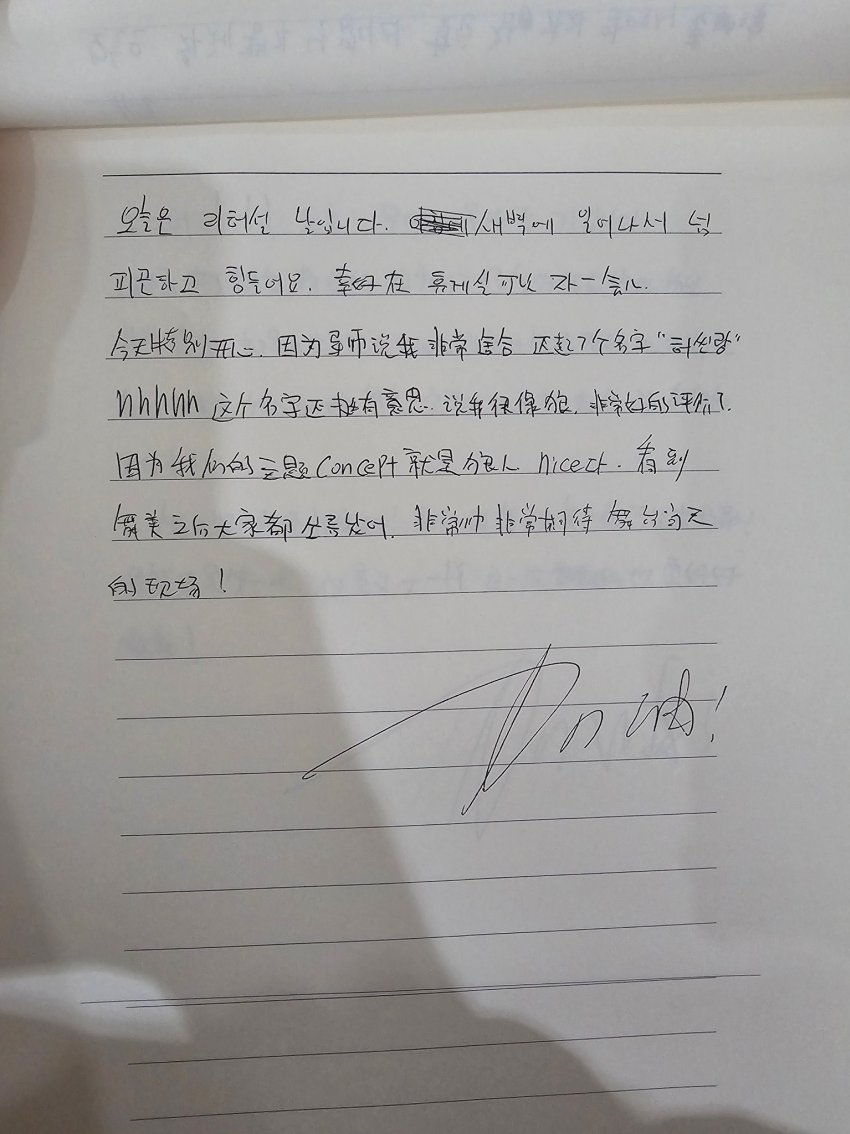 오늘은 리허설 날입니다. 새벽에 일어나서 넘
피곤하고 힘들어요. 幸好在 휴게실 可以 자一会儿.
今天特别开心. 因为导师说我非常适合 还起了个名字 "허씬랑"
hhhhh 这个名字还挺有意思. 说我很像狼. 非常好的评价了.
因为我们的主题 Concept 就是狼人 nice다. 看到
舞美之后大家都 소름 났어. 非常帅 非常期待舞台当天
的现场!
加油!